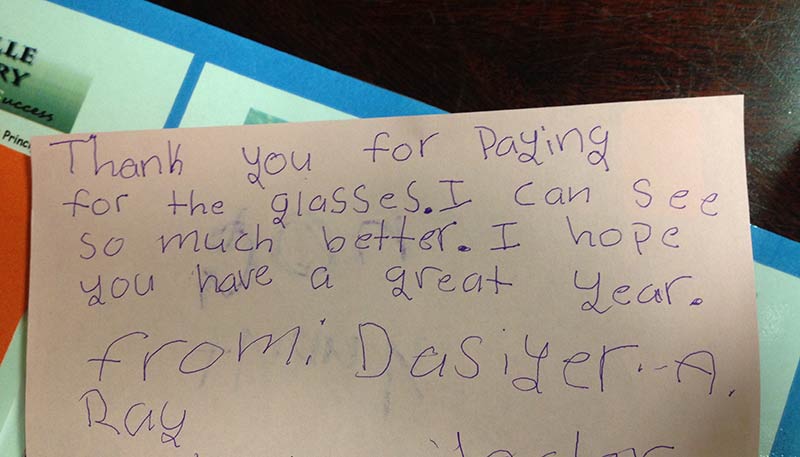 LLE
RY
Success
Princ
Thank you for Paying
for the glasses. I can see
so much better. I hope
you have a great year.
from: Dasiyer.-A.
Ray